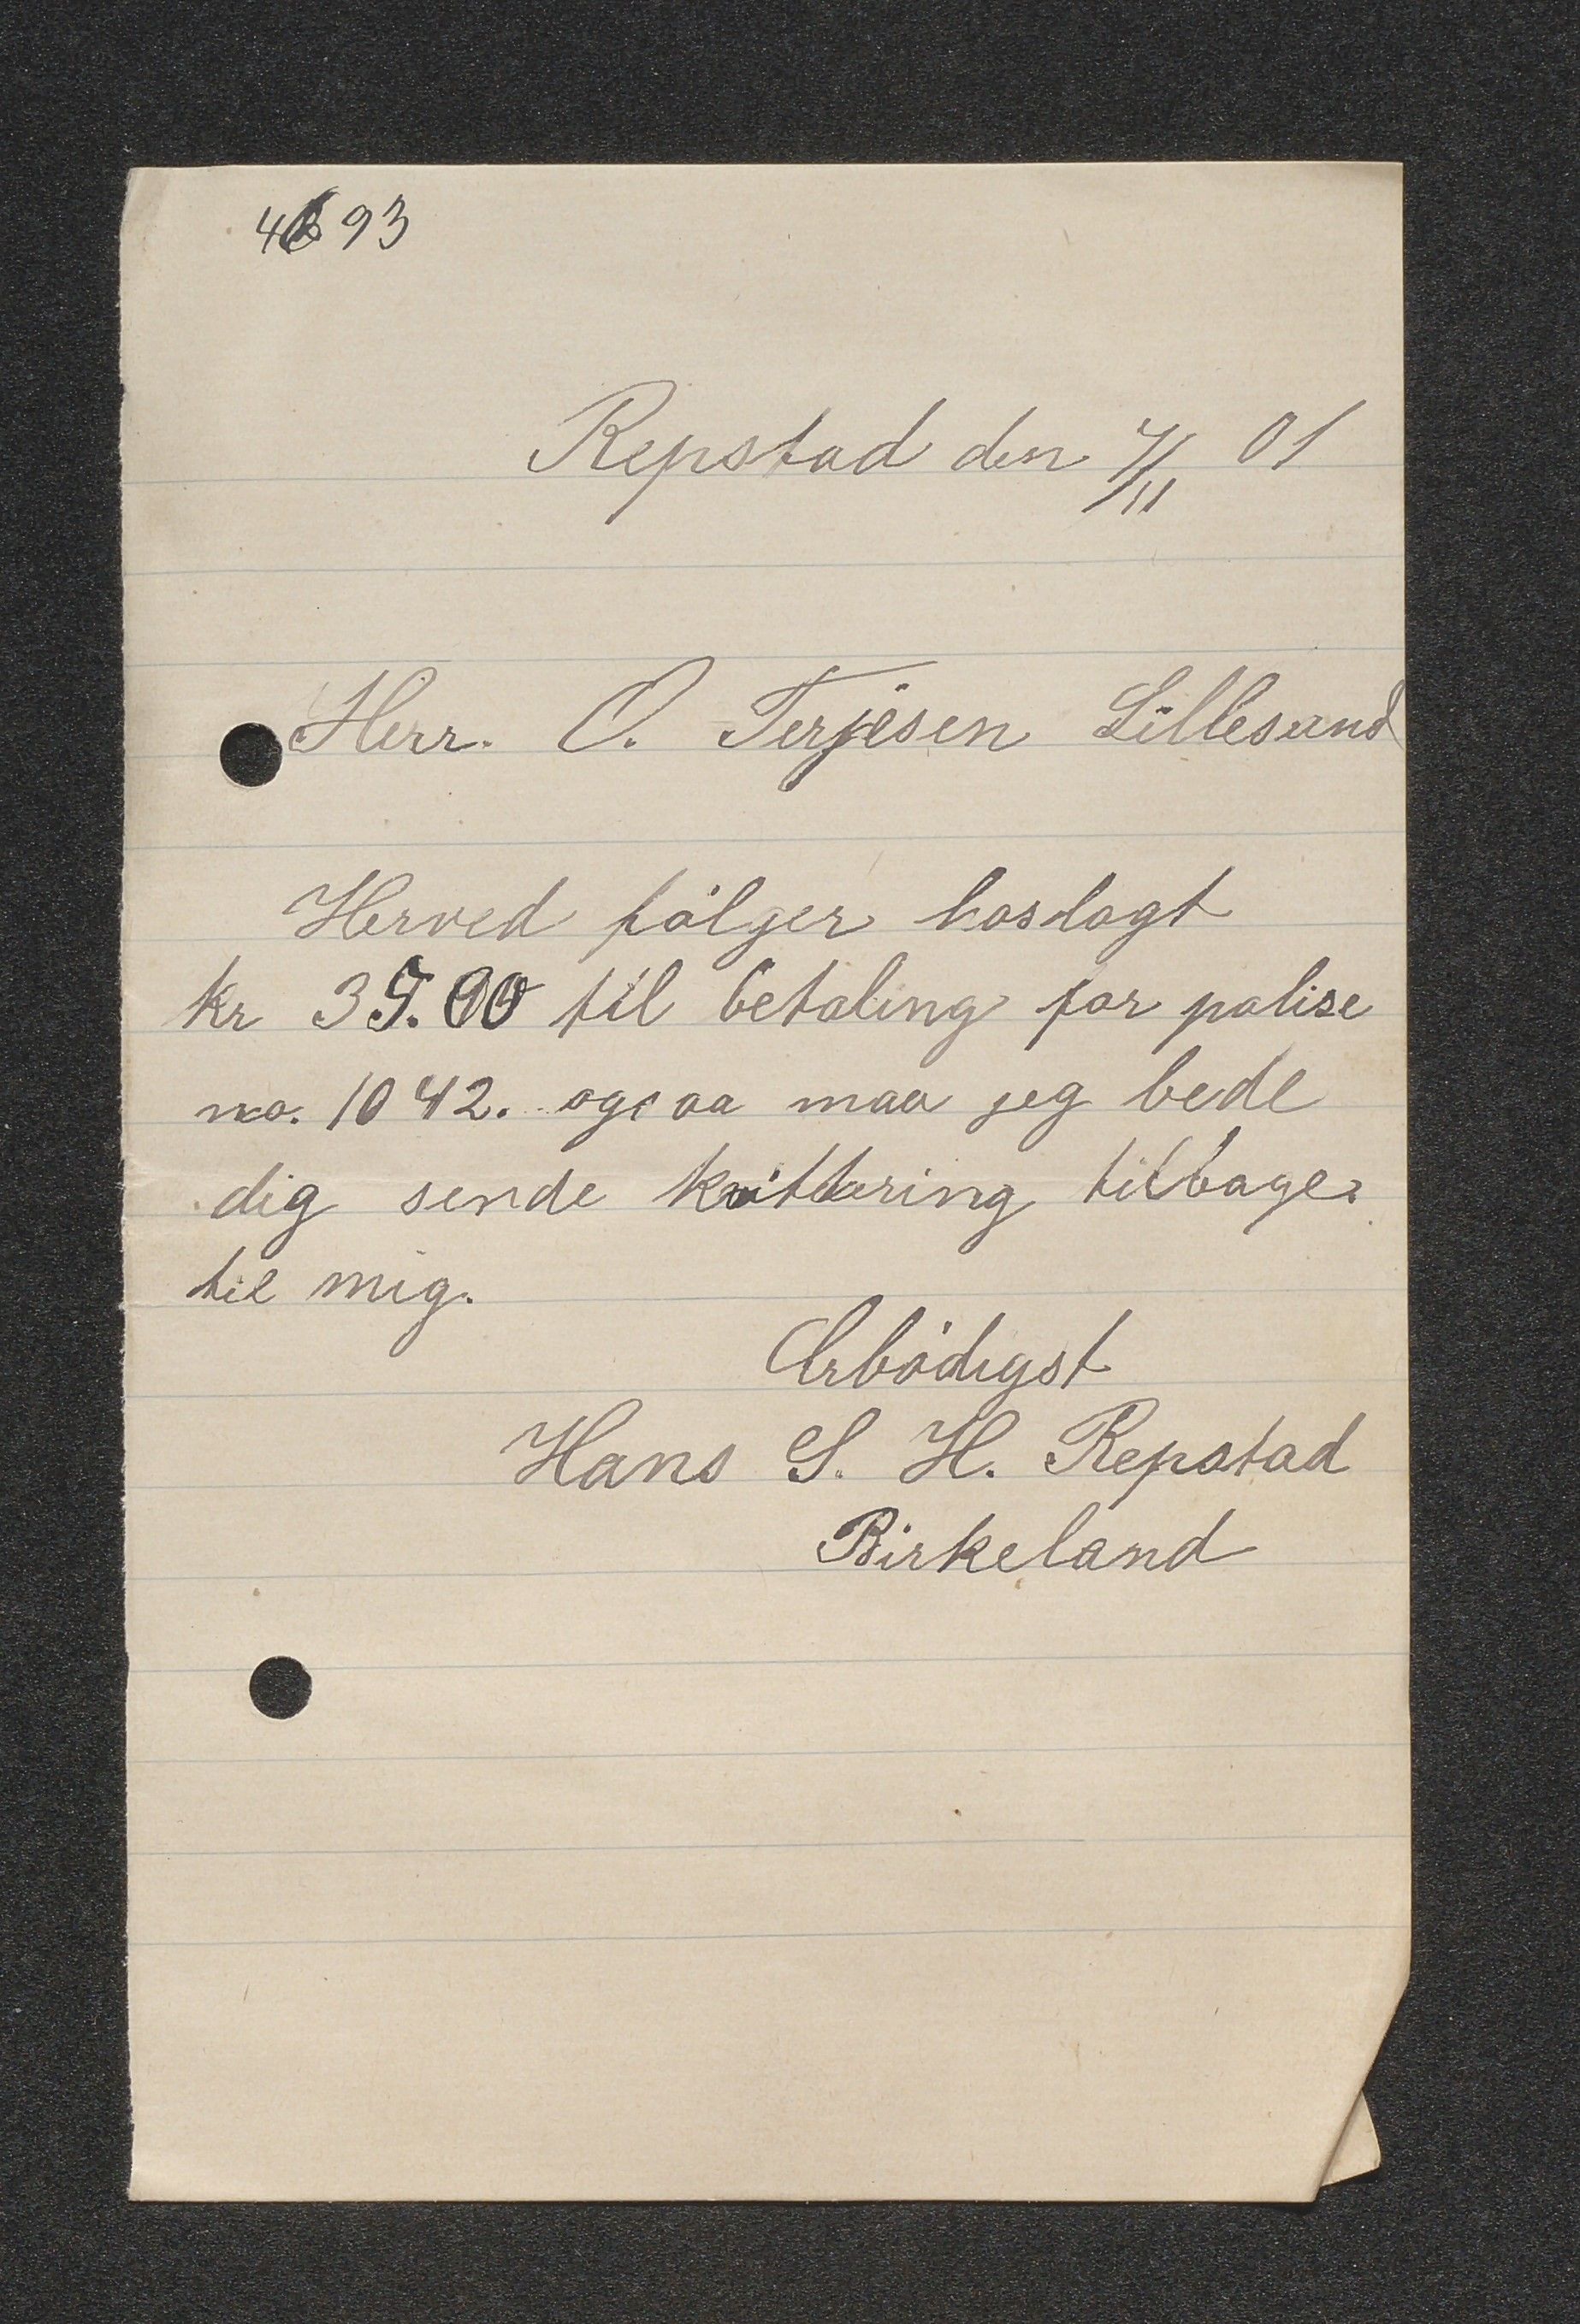 4693
Repstad den 4/11 01
Herr. O. Terjesen Lillesand
Herved følger hoslagt
kr 35.00 til betaling for polise
no. 1042. ogsaa maa jeg bede
dig sende kvittering tilbage
til mig.
Erbödigst
Hans S. H. Repstad
Birkeland